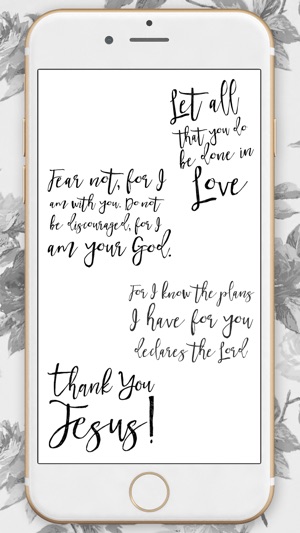 Let all
that you do
be done in
Love
Fear not, for I
am with you. Do not
be discouraged, for I
am your God.
For I know the plans
I have for you
declares the Lord
Thank You
Jesus!